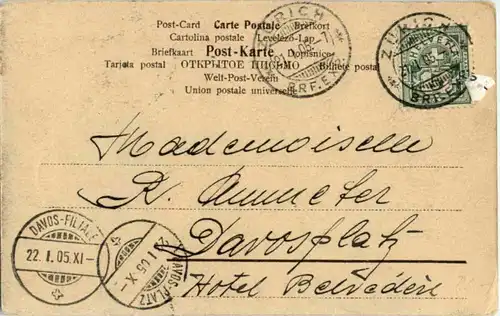 Post-Card Carte Postale Brefkort
Cartolina postale Levelező-Lap
Briefkaart Post-Karte Dopisnice
Tarjeta postal ОТКРЫТОЕ ПИСЬМО Bilhete postal
Welt-Post-Verein
Union postale universelle
ZÜRICH
BRF.EXP.
ZÜRICH
BRF.EXP.
Mademoiselle
R. Ammeter
Davosplatz
Hotel Belvédère
DAVOS-FILIALE
22. I. 05. XI-
I. 05 X-
DAVOS-PLATZ